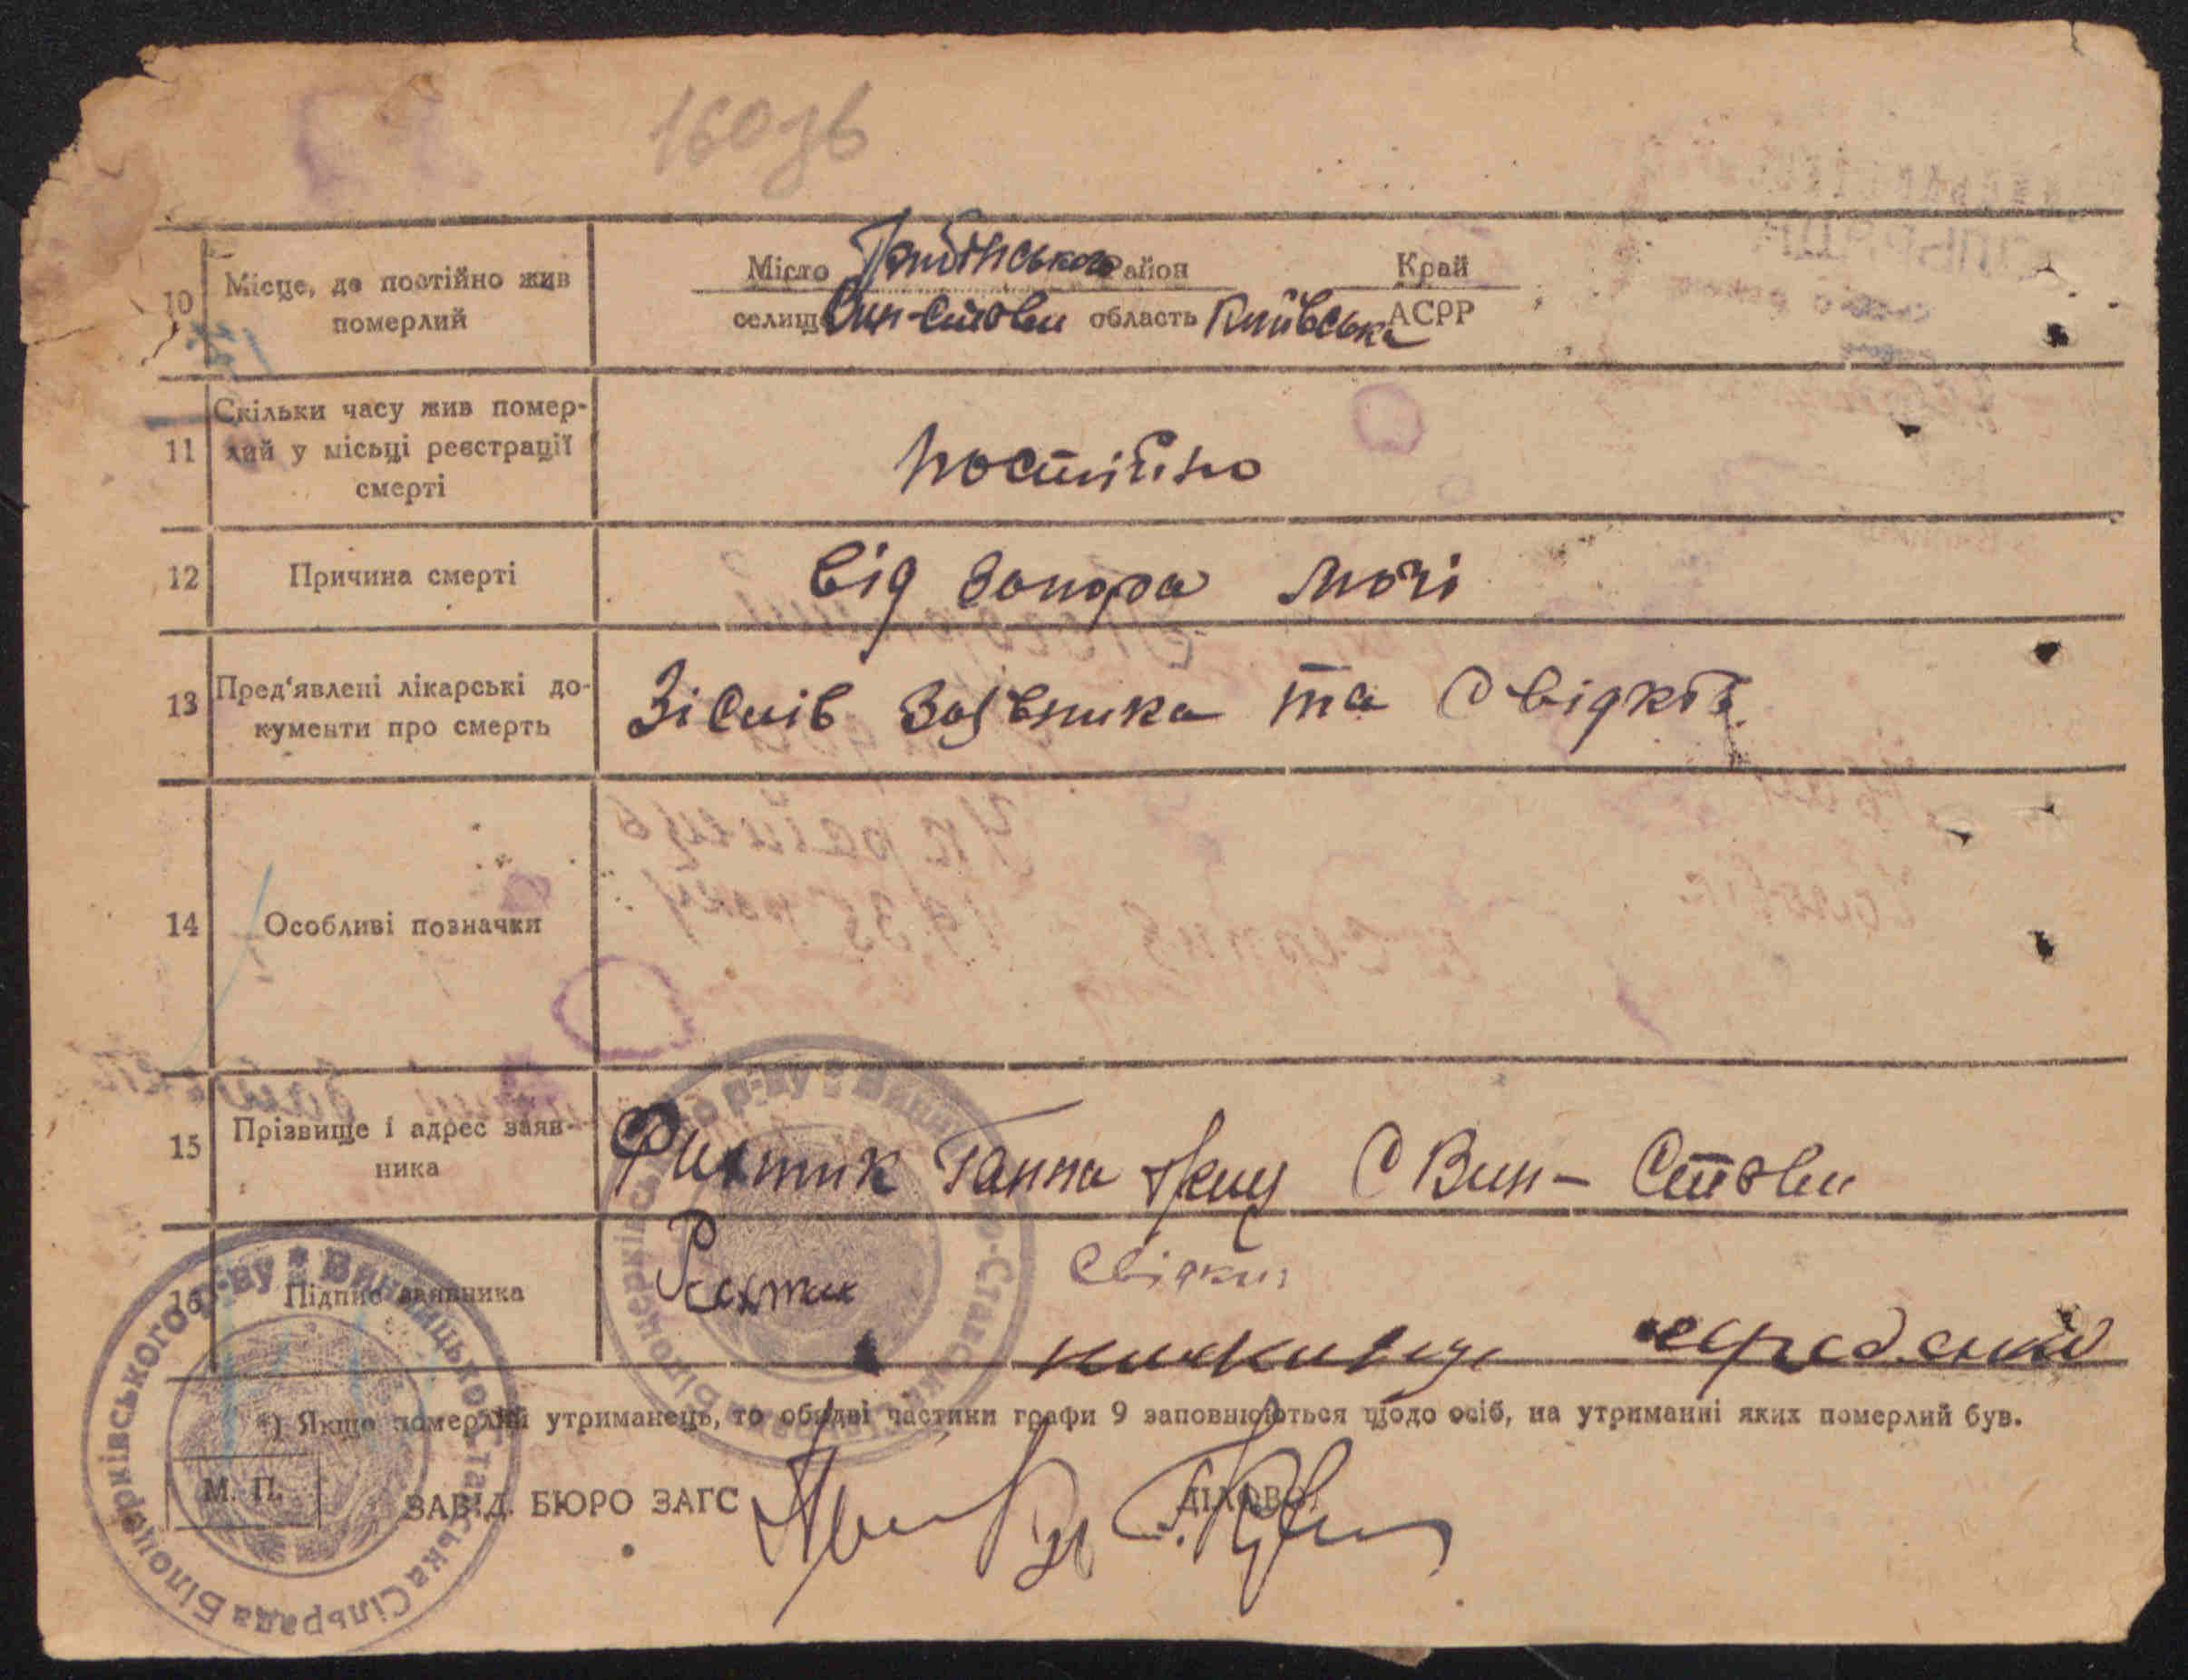 160зв
10 Місце, де постійно жив померлий
Місто Район Край
селище Вин-Стави область Київська АСРР
11 Скільки часу жив помер-
лий у місьці реєстрації
смерті
постійно
12 Причина смерті
від запора мочі
13 Пред'явлені лікарські до-
кументи про смерть
Зі слів заявника та свідків
14 Особливі позначки
15 Прізвище і адрес заяв-
ника
Ганна С Вин-Стави
16 Підпис заявника
свідки:
*) Якщо померлий утриманець, то обидві частини графи 9 заповнюються щодо осіб, на утриманні яких померлий був.
М. П.
ЗАВІД. БЮРО ЗАГС ДІЛОВОД
Винницько-Ставська Сільрада Білоцерківського р-ву
Винницько-Ставська Білоцерківського р-ву